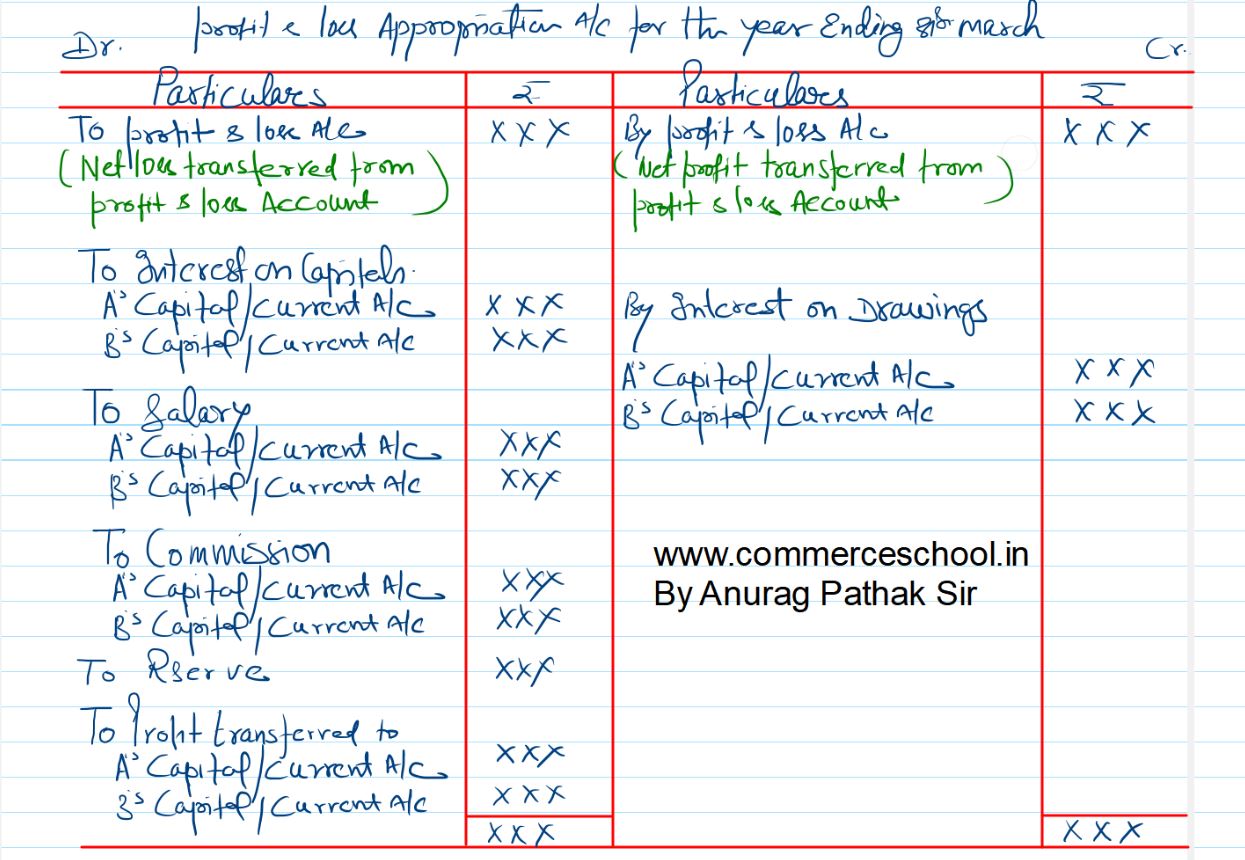 Profit & loss Appropriation A/c for the year Ending 31st March
Dr. Cr.
Particulars ₹ Particulars ₹
To profit & loss A/c XXX By profit & loss A/c XXX
(Net loss transferred from (Net profit transferred from
profit & loss Account) profit & loss Account)
To Interest on Capitals.
A's Capital/Current A/c XXX By Interest on Drawings
B's Capital/Current A/c XXX
A's Capital/Current A/c XXX
To Salary B's Capital/Current A/c XXX
A's Capital/Current A/c XXX
B's Capital/Current A/c XXX
To Commission www.commerceschool.in
A's Capital/Current A/c XXX By Anurag Pathak Sir
B's Capital/Current A/c XXX
To Rserve XXX
To Profit transferred to
A's Capital/Current A/c XXX
B's Capital/Current A/c XXX
XXX XXX